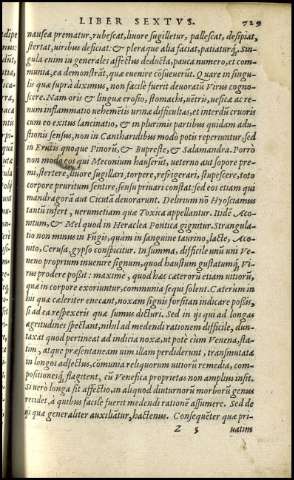 LIBER SEXTVS. 729
nausea prematur, rubescat, livore sugilletur, pallescat, despiat,
stertat, viribus deficiat: & pleraque alia faciat, patiaturq́. Sin-
gula eum in generales affectus deducta, pauca numero, et com-
munia, ea demonstrāt, quæ evenire consueverūt. Quare in singu-
lis quæ supra diximus, non facile fuerit devoratū Virus cogno-
scere. Nam oris & linguæ erosio, stomachi, vētris, vesicæ ac re-
num inflammatio nehemētis urinæ difficultas, et interdū cruoris
cum eo exitus lancinatio, & in plurimis partibus quidam adu-
stionis sensus, non in Cantharidibus modo poti reperiuntur, sed
in Erucis quoque Pinorū, & Bupreste, & Salamandra. Porro
non modo qui Meconium hauserūt, veterno aut sopore premi,
stertere, livore sugillari, torpere, refrigerari, stupescere, toto
corpore pruritum sentire, sensu privari constat: sed eos etiam qui
mandragorā aut Cicutā devorarunt. Delirium nō Hyoscïamus
tantū infert, verumetiam quæ Toxica appellantur. Itidē Aco-
nitum, & Mel quod in Heraclea Pontica gignitur. Strangula-
tio non minus in Fūgis, quàm in sanguine taurino, lacte, Aco-
nito, Cerusa, gypso consistitur. In summa, difficile unū unï Ve-
neno proprium invenire signum, quod haustum gustatumq́; Vi-
rus prodere possit: maxime, quod hæc cæterorū etiam vitiorū,
quæ in corpore exoriuntur, communia sequi solent. Cæterum in
his quæ celeriter enecant, noxam signis forsitan indicare possis,
si ad ea respexeris quæ sumus dicturi. Sed in ijs qui ad longas
ægritudines spectant, nihil ad medendi rationem difficile, dum-
taxat quod pertineat ad indicia noxæ, ut pote cùm Venena, sta-
tim, atque præsentaneam vim illam perdiderunt, transmutata
in longos adfectus, communia reliquorum vitiorū remedia, com-
positionesq́; flagitent, cū Venefica proprietas non amplius infit.
Et vero longa sit affectio, in aliquod diuturnorū morborū genus
incidet, à quibus facile fuerit medendi rationē assumere. Sed de
ijs quæ generaliter auxiliātur, hactenus. Consequēter quæ pri-
Z 5 vatim